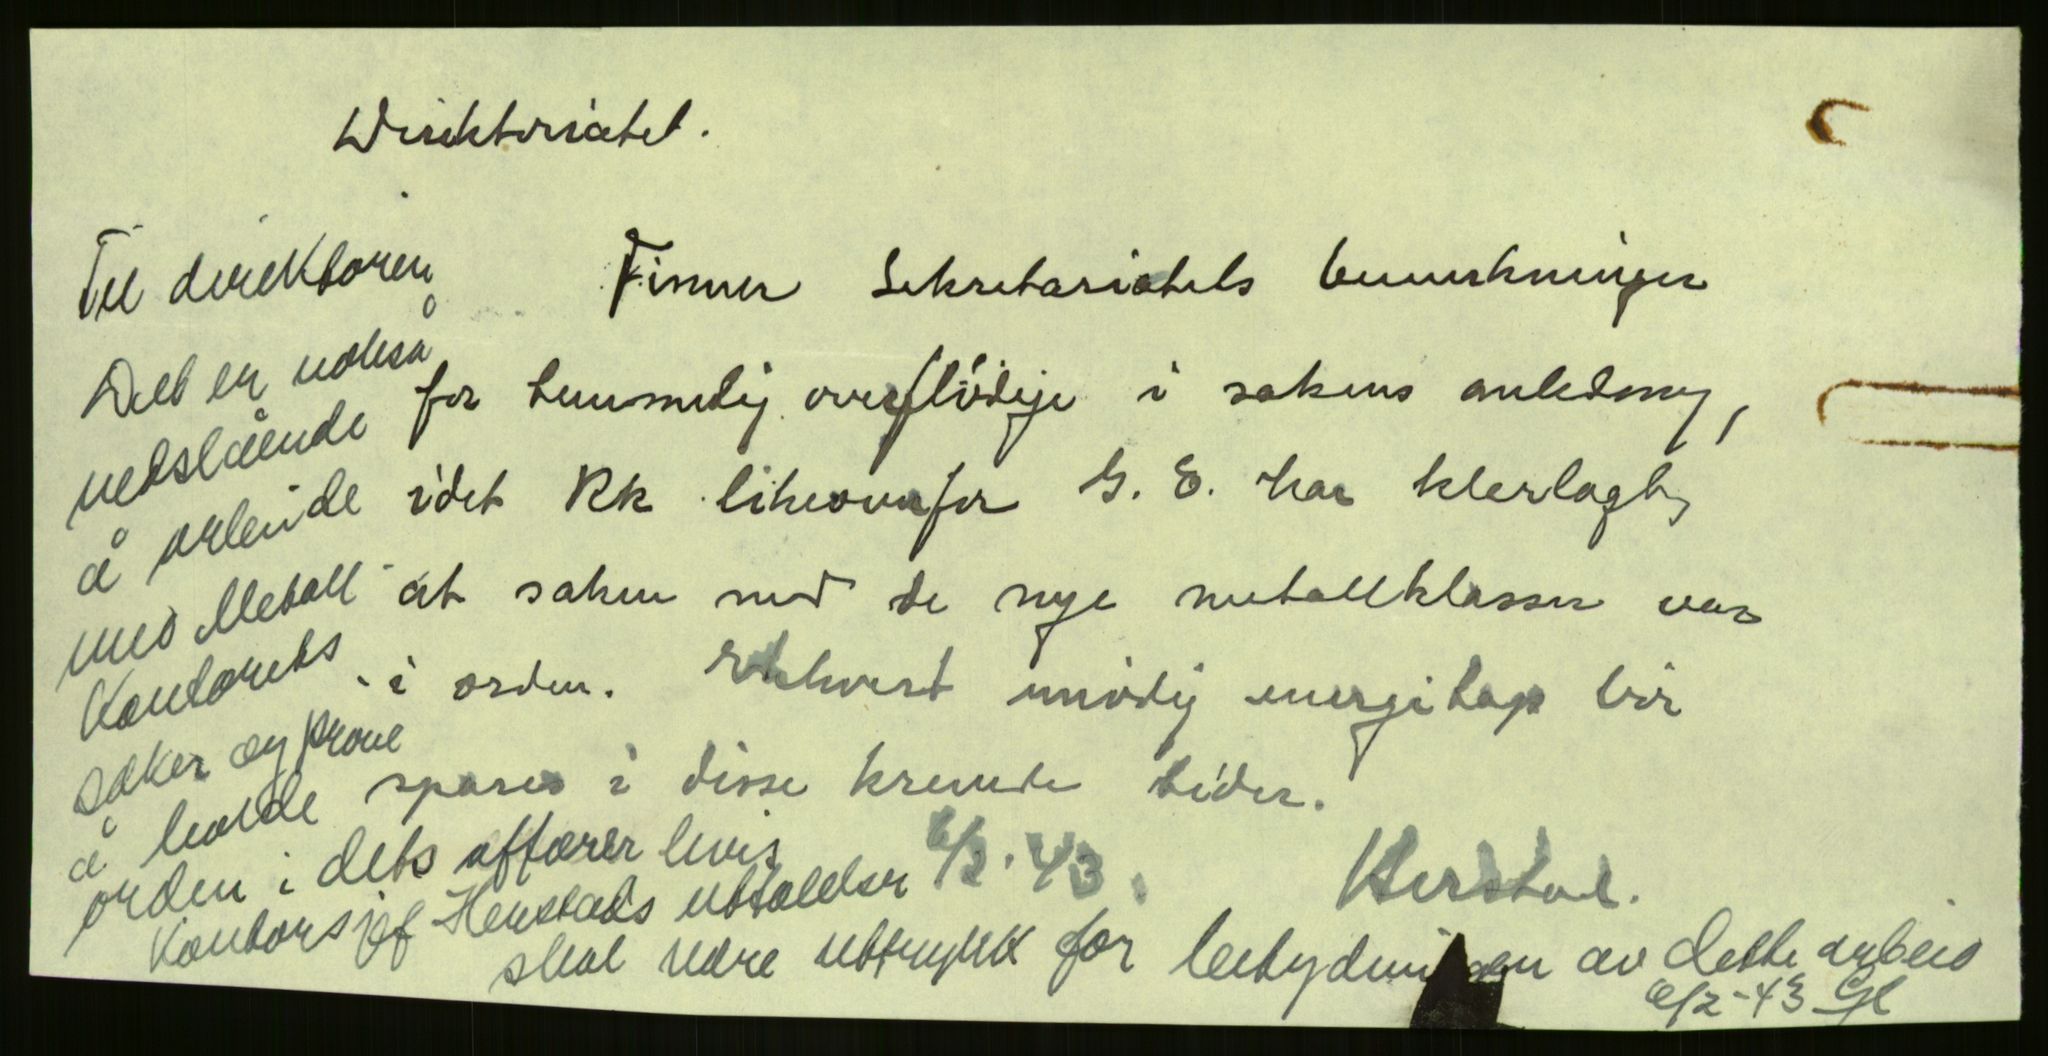 Direktoriatet.
Finner Sekretariatets bemerkninger
for temmelig overflödige i sakens anledning,
idet Rk likeoverfor G. E. har klarlagt,
at saken med de nye metallklasser var
i orden. Ethvert unödig energitap bör
spares i disse kremde tider.
6/2.43. Herstad.
Til direktøren
Det er nokså
nedslående
å arbeide
med Metall
Kontorets
saker og prøve
å holde
orden i dets affærer hvis
Kontorsjef Herstads uttalelser
skal være uttrykk for betydningen av dette arbeid
6/2-43 Gl